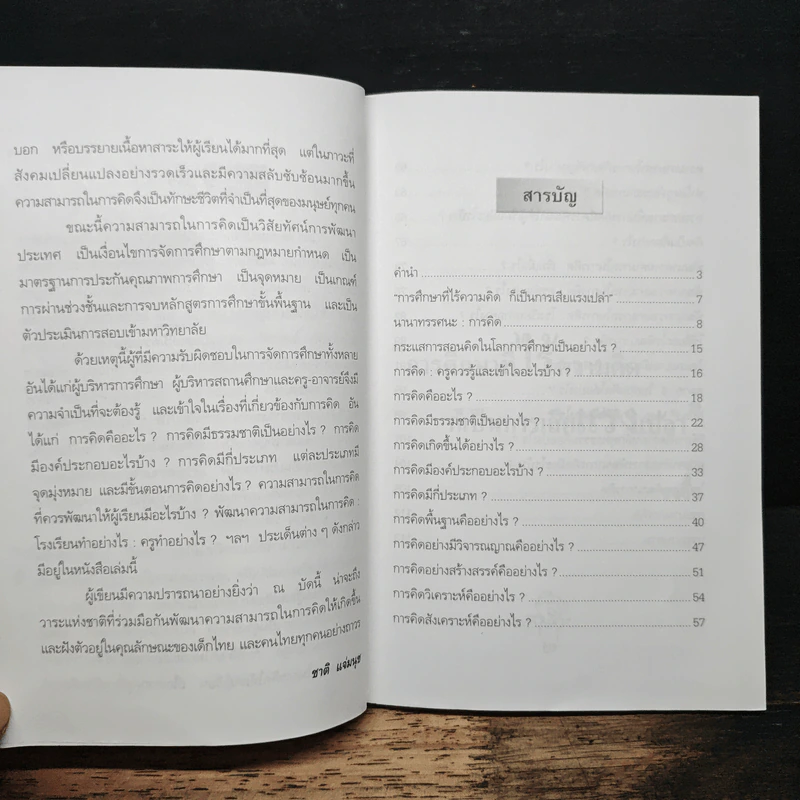 บอก หรือบรรยายเนื้อหาสาระให้ผู้เรียนได้มากที่สุด แต่ในภาวะที่
สังคมเปลี่ยนแปลงอย่างรวดเร็วและมีความสลับซับซ้อนมากขึ้น
ความสามารถในการคิดจึงเป็นทักษะชีวิตที่จำเป็นที่สุดของมนุษย์ทุกคน
ขณะนี้ความสามารถในการคิดเป็นวิสัยทัศน์การพัฒนา
ประเทศ เป็นเงื่อนไขการจัดการศึกษาตามกฎหมายกำหนด เป็น
มาตรฐานการประกันคุณภาพการศึกษา เป็นจุดหมาย เป็นเกณฑ์
การผ่านช่วงชั้นและการจบหลักสูตรการศึกษาขั้นพื้นฐาน และเป็น
ตัวประเมินการสอบเข้ามหาวิทยาลัย
ด้วยเหตุนี้ผู้ที่มีความรับผิดชอบในการจัดการศึกษาทั้งหลาย
อันได้แก่ผู้บริหารการศึกษา ผู้บริหารสถานศึกษาและครู-อาจารย์จึงมี
ความจำเป็นที่จะต้องรู้ และเข้าใจในเรื่องที่เกี่ยวข้องกับการคิด อัน
ได้แก่ การคิดคืออะไร ? การคิดมีธรรมชาติเป็นอย่างไร ? การคิด
มีองค์ประกอบอะไรบ้าง ? การคิดมีกี่ประเภท แต่ละประเภทมี
จุดมุ่งหมาย และมีขั้นตอนการคิดอย่างไร ? ความสามารถในการคิด
ที่ควรพัฒนาให้ผู้เรียนมีอะไรบ้าง ? พัฒนาความสามารถในการคิด :
โรงเรียนทำอย่างไร : ครูทำอย่างไร ? ฯลฯ ประเด็นต่าง ๆ ดังกล่าว
มีอยู่ในหนังสือเล่มนี้
ผู้เขียนมีความปรารถนาอย่างยิ่งว่า ณ บัดนี้ น่าจะถึง
วาระแห่งชาติที่ร่วมมือกันพัฒนาความสามารถในการคิดให้เกิดขึ้น
และฝังตัวอยู่ในคุณลักษณะของเด็กไทย และคนไทยทุกคนอย่างถาวร
ชาติ แจ่มนุช
สารบัญ
คำนำ 3
"การศึกษาที่ไร้ความคิด ก็เป็นการเสียแรงเปล่า" 7
นานาทรรศนะ : การคิด 8
กระแสการสอนคิดในโลกการศึกษาเป็นอย่างไร ? 15
การคิด : ครูควรรู้และเข้าใจอะไรบ้าง ? 16
การคิดคืออะไร ? 18
การคิดมีธรรมชาติเป็นอย่างไร ? 22
การคิดเกิดขึ้นได้อย่างไร ? 28
การคิดมีองค์ประกอบอะไรบ้าง ? 33
การคิดมีกี่ประเภท ? 37
การคิดพื้นฐานคืออย่างไร ? 40
การคิดอย่างมีวิจารณญาณคืออย่างไร ? 47
การคิดอย่างสร้างสรรค์คืออย่างไร ? 51
การคิดวิเคราะห์คืออย่างไร ? 54
การคิดสังเคราะห์คืออย่างไร ? 57